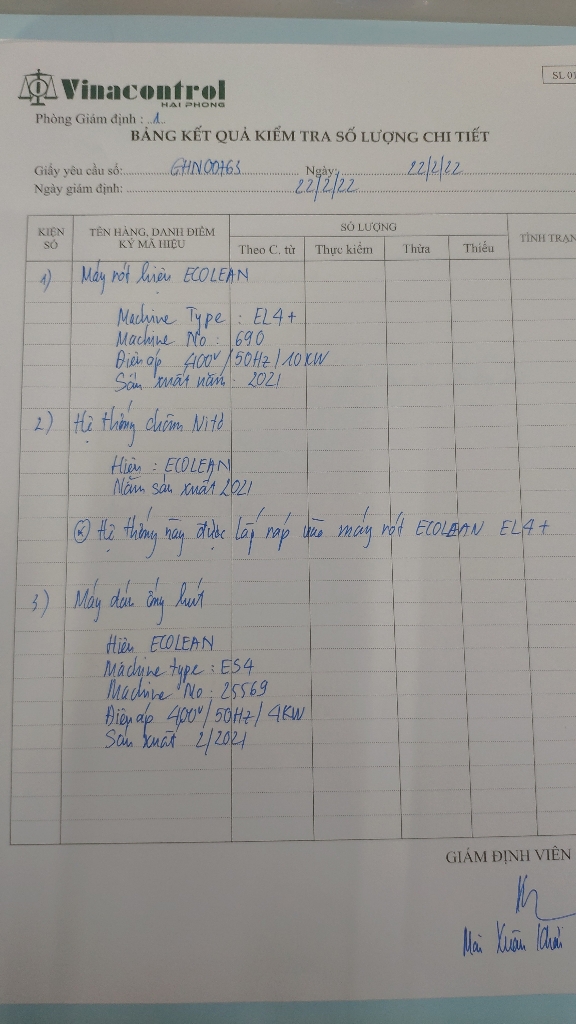 Vinacontrol
HAI PHONG
SL 01
Phòng Giám định : 1
BẢNG KẾT QUẢ KIỂM TRA SỐ LƯỢNG CHI TIẾT
Giấy yêu cầu số: GHN00763 Ngày: 22/2/22
Ngày giám định: 22/2/22
KIỆN SỐ
TÊN HÀNG, DANH ĐIỂM KÝ MÃ HIỆU
SỐ LƯỢNG
TÌNH TRẠN
Theo C. từ Thực kiểm Thừa Thiếu
1) Máy rót hiệu ECOLEAN
Machine Type : EL4+
Machine No : 690
Điện áp 400V/50Hz/10KW
Sản xuất năm : 2021
2) Hệ thống châm Nitơ
Hiệu : ECOLEAN
Năm sản xuất 2021
Hệ thống này được lắp ráp vào máy rót ECOLEAN EL4+
3) Máy dán ống hút
Hiệu ECOLEAN
Machine type : ES4
Machine No : 25569
Điện áp 400V/50Hz/4KW
Sản xuất 2/2021
GIÁM ĐỊNH VIÊN
Mai Xuân